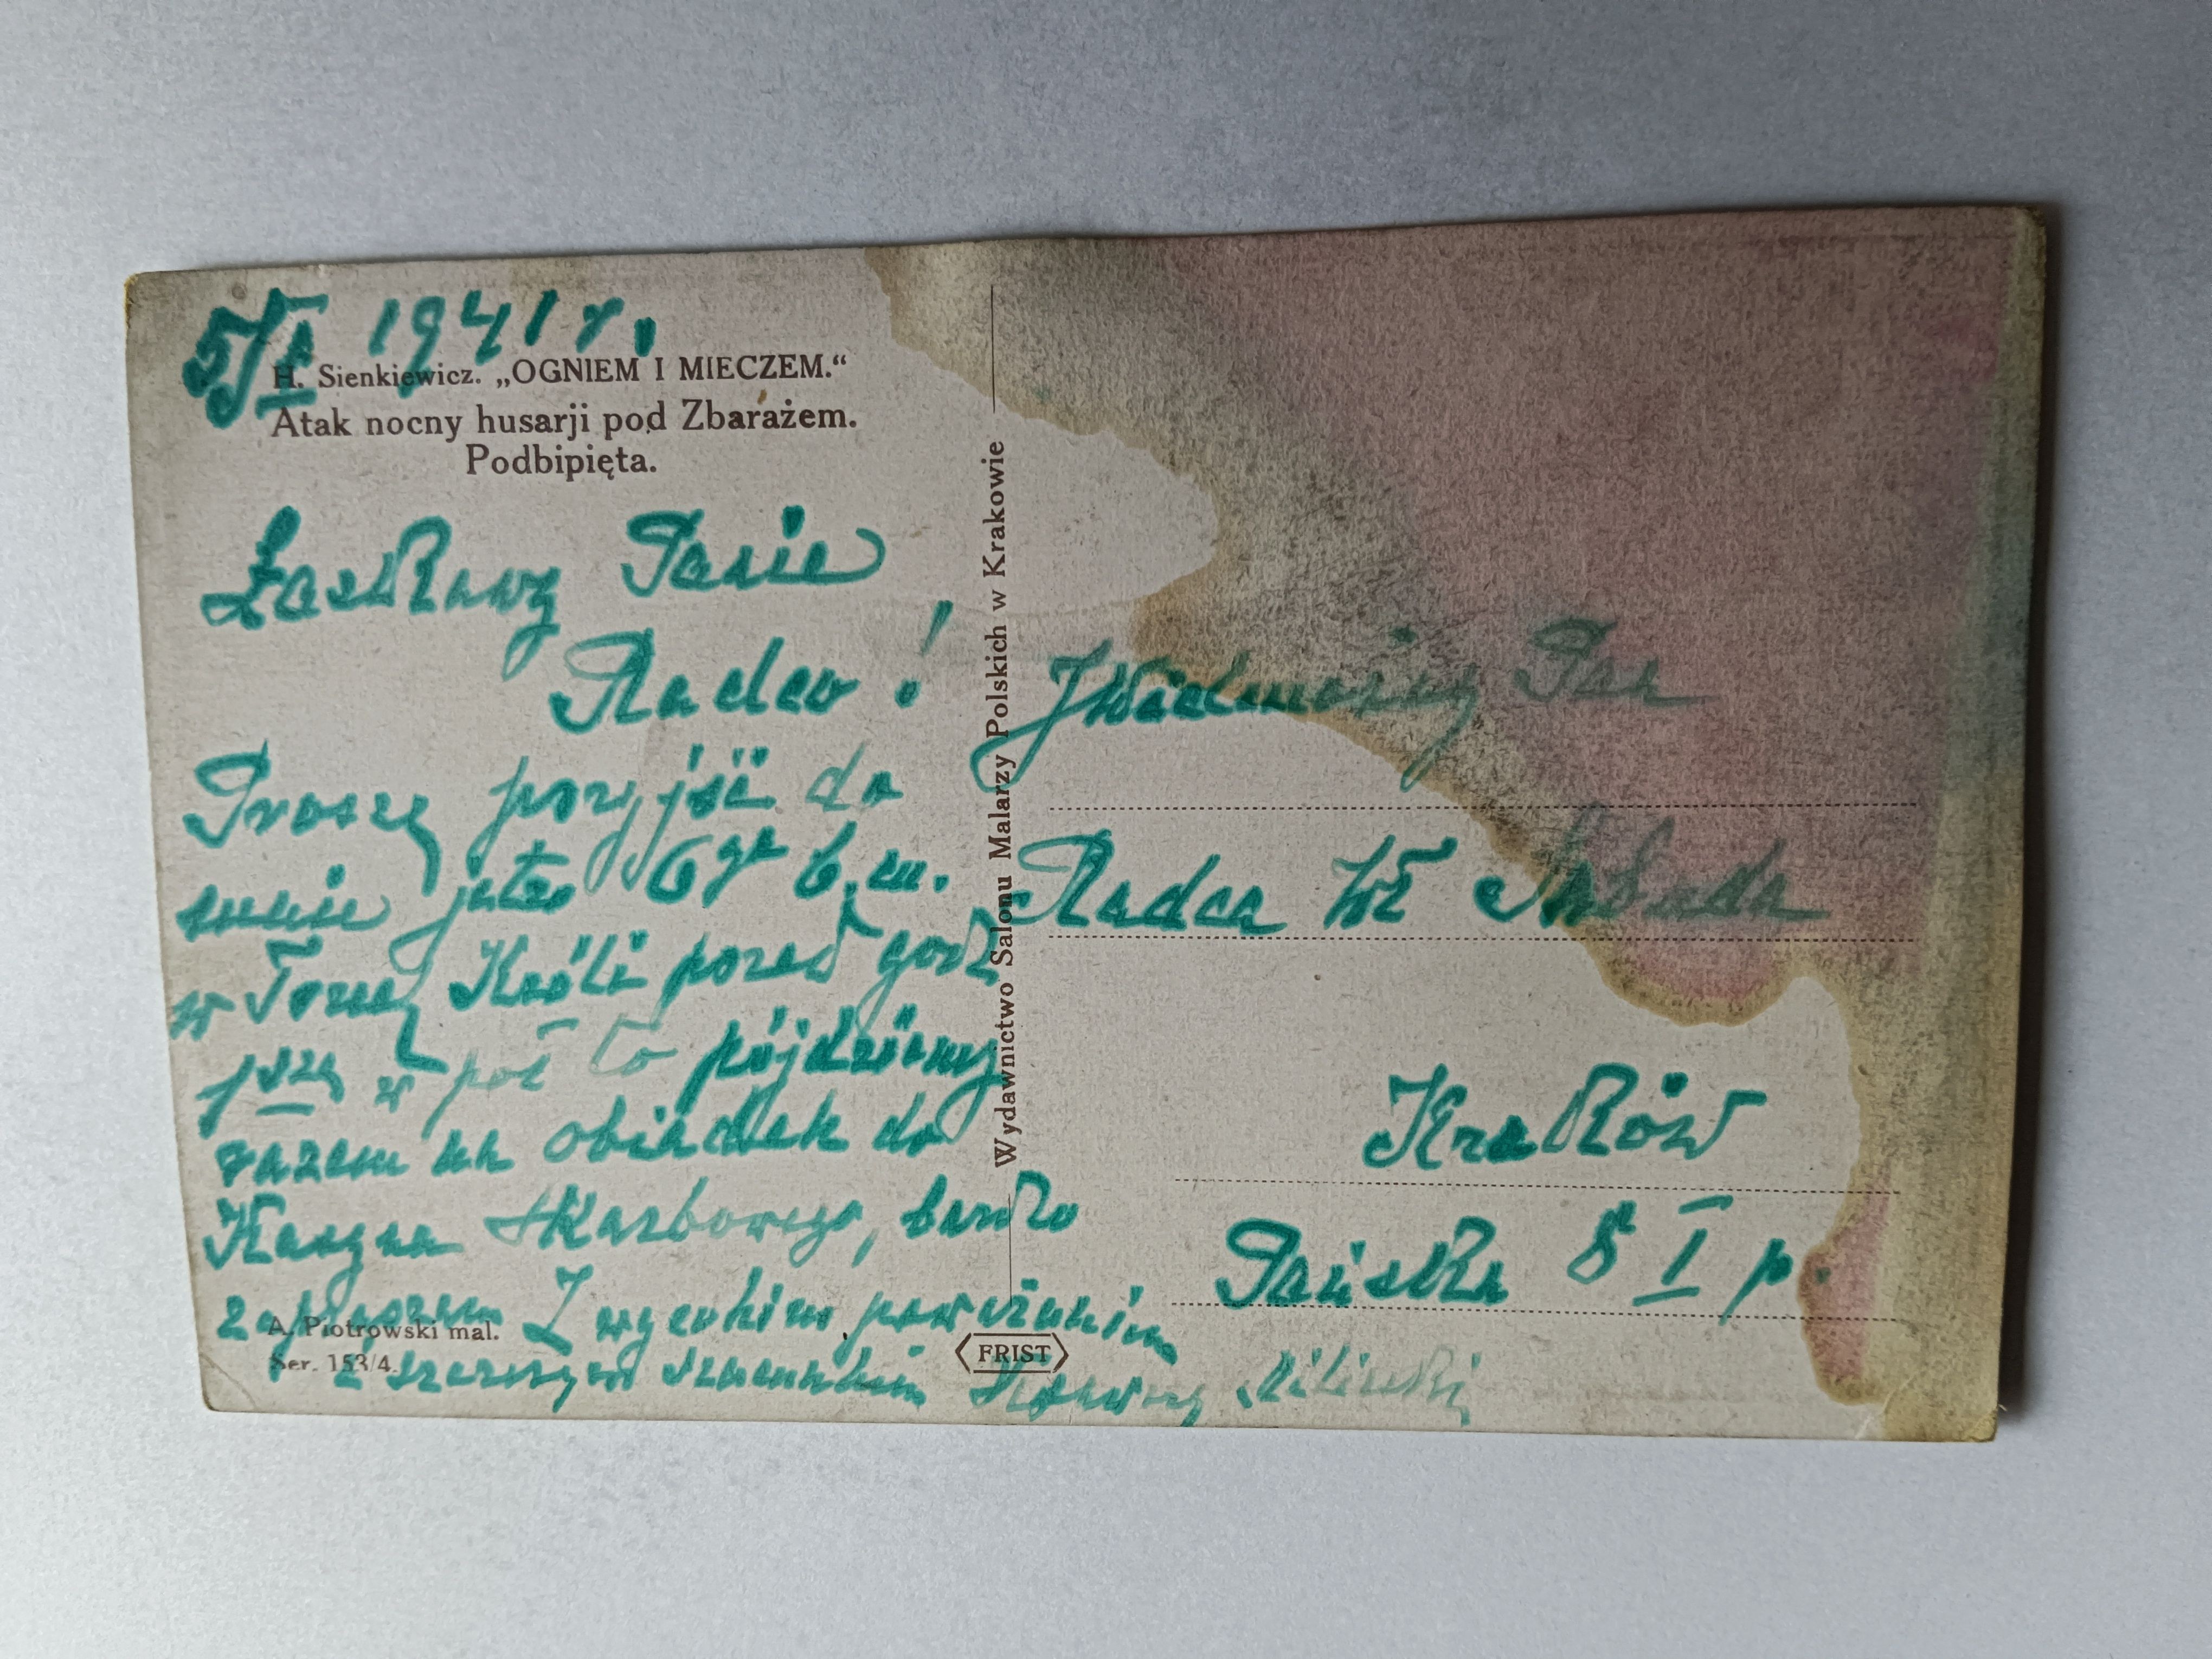 5/I 1941 r.
H. Sienkiewicz. „OGNIEM I MIECZEM.“
Atak nocny husarji pod Zbarażem.
Podbipięta.
Łaskawy Panie
Radco!
Proszę przyjść do
mnie jutro 6go b.m.
w Trzej Króli przed godz
1szą w poł to pójdziemy
razem na obiadek do
Kasyna Skarbowego, bardzo
zapraszam Z wysokim poważaniem
i szczerym szacunkiem
A. Piotrowski mal.
Ser. 153/4.
Wydawnictwo Salonu Malarzy Polskich w Krakowie
FRIST
JWielmożny Pan
Radca Wł
Kraków
Pańska 8 I p.